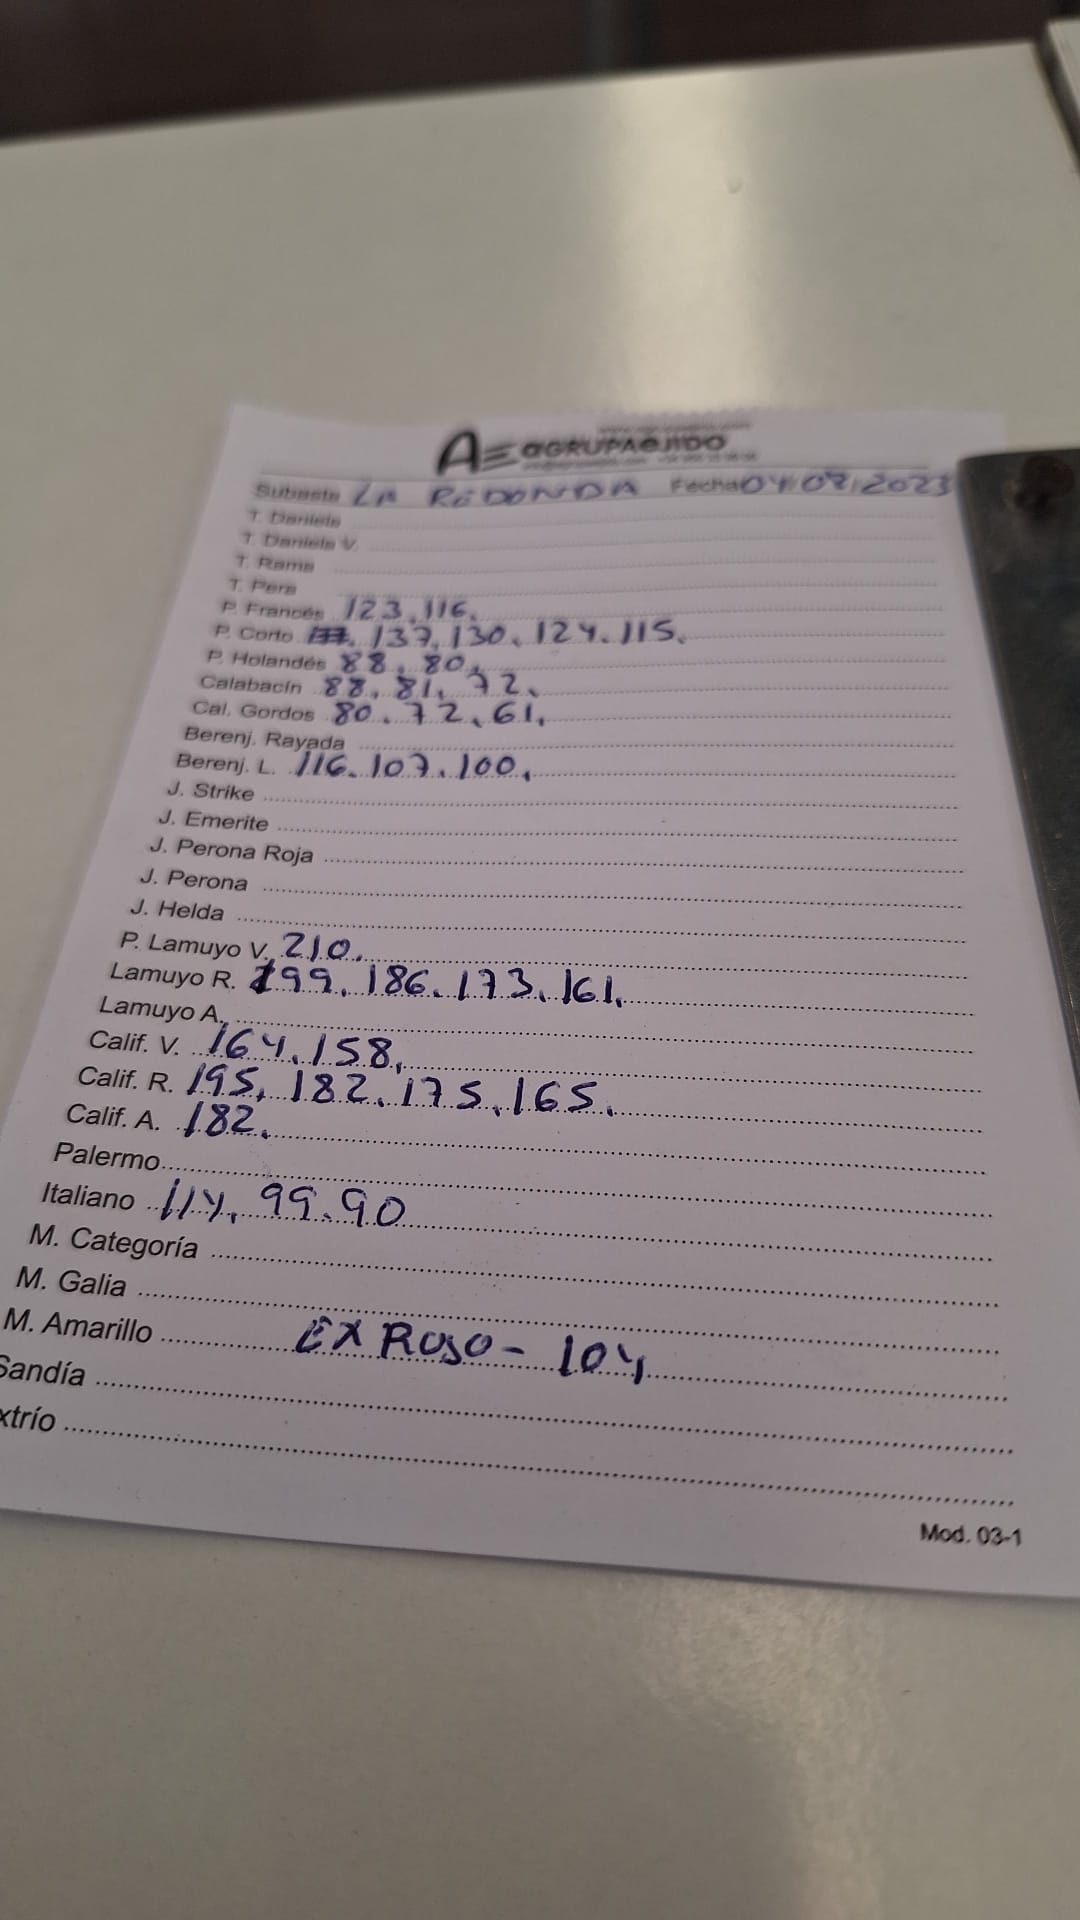 AE aGRUPAeJIDO
Subasta LA REDONDA Fecha 04/08/2023
T. Daniela
T. Daniela V.
T. Rama
T. Pera
P. Francés 123, 116,
P. Corto 137, 130, 124, 115,
P. Holandés 88, 80,
Calabacín 88, 81, 72,
Cal. Gordos 80, 72, 61,
Berenj. Rayada
Berenj. L. 116, 107, 100,
J. Strike
J. Emerite
J. Perona Roja
J. Perona
J. Helda
P. Lamuyo V. 210,
Lamuyo R. 199, 186, 173, 161,
Lamuyo A.
Calif. V. 164, 158,
Calif. R. 195, 182, 175, 165,
Calif. A. 182,
Palermo
Italiano 114, 99, 90
M. Categoría
M. Galia
M. Amarillo EX ROJO - 104
Sandía
xtrío
Mod. 03-1